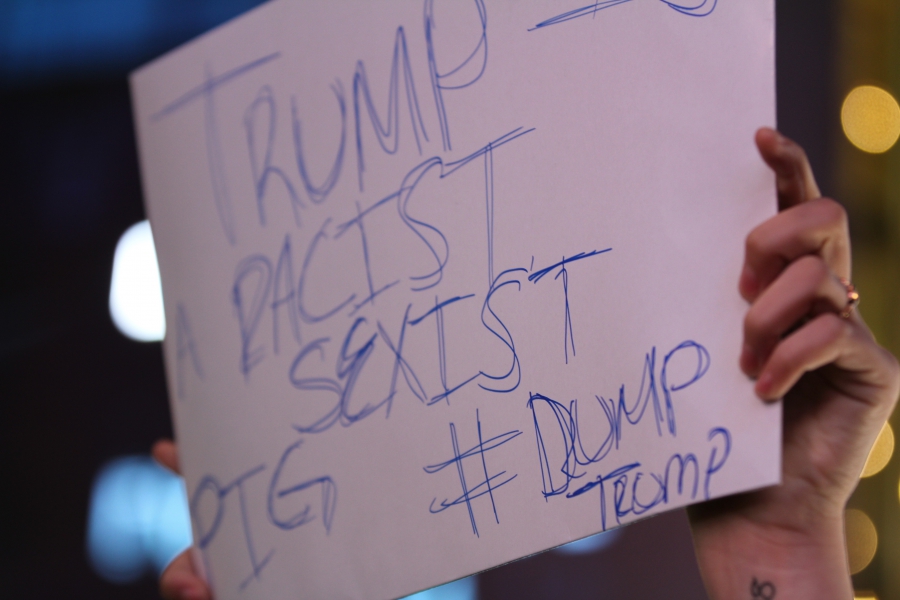 TRUMP IS
A RACIST
SEXIST
PIG #DUMP
TRUMP